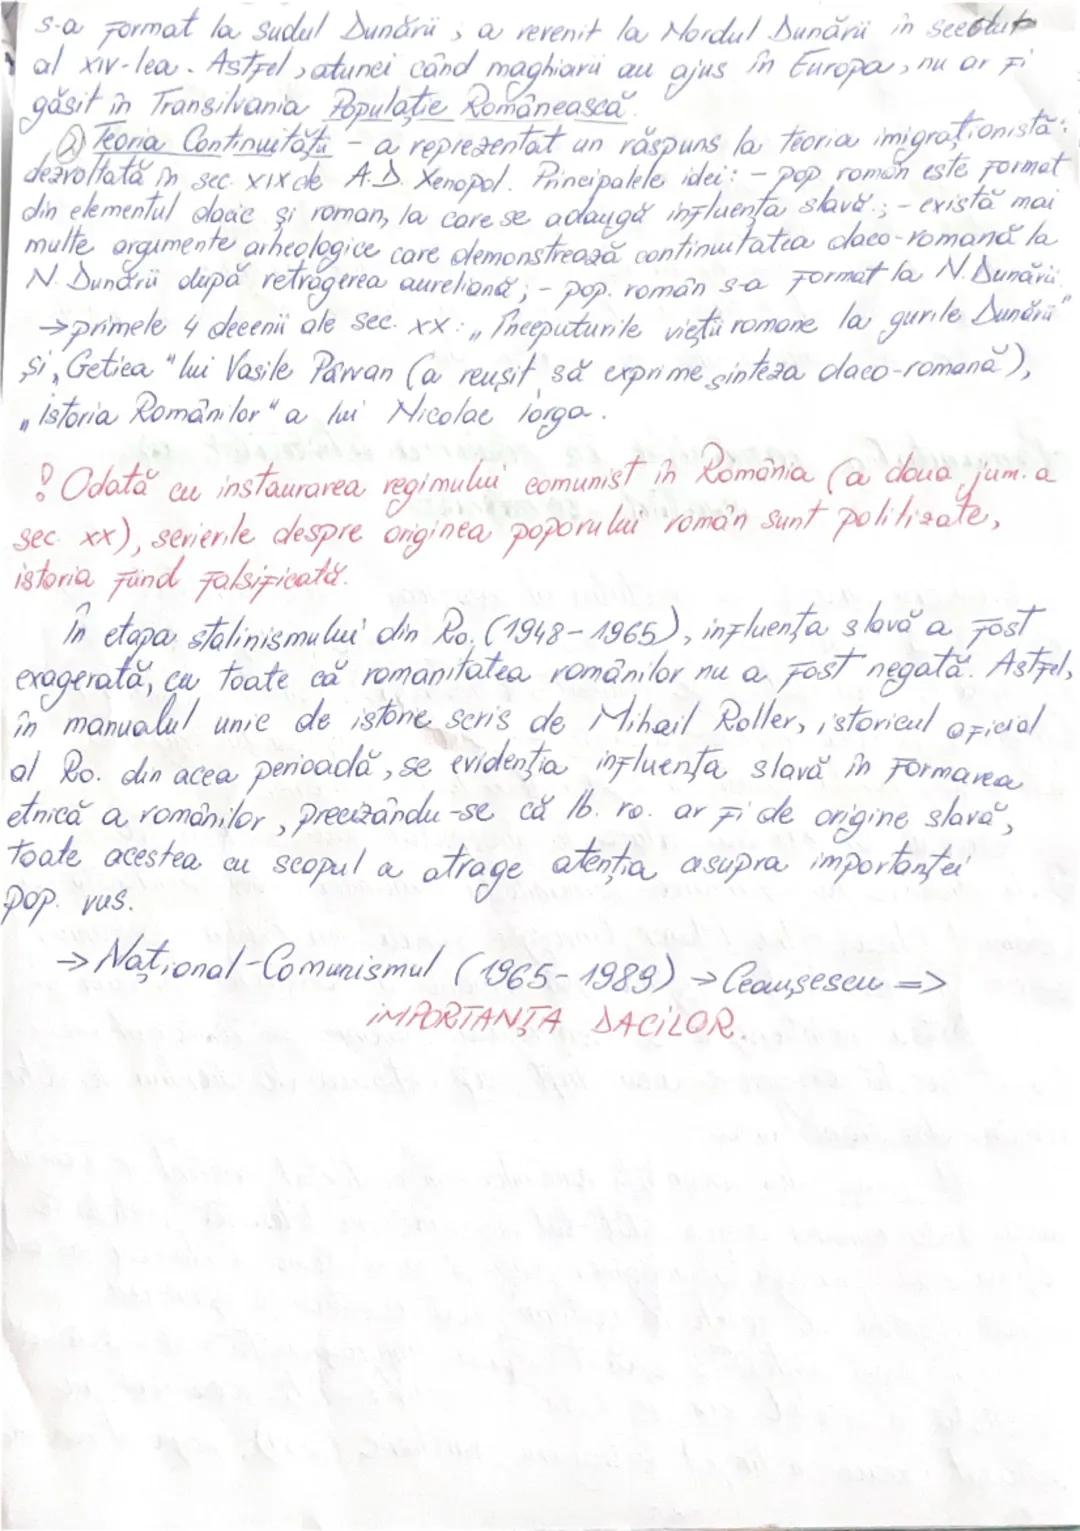 s-a format la sudul Dunării ; a revenit la Nordul Dunării în secolul
al XIV-lea. Astfel, atunci când maghiarii au ajus în Europa, nu ar fi
găsit în Transilvania Populație Românească.
② Teoria Continuității - a reprezentat un răspuns la teoria imigraționistă:
dezvoltată în sec. XIX de A.D. Xenopol. Principalele idei: - pop român este format
din elementul dacic și roman, la care se adaugă influența slavă.; - există mai
multe argumente arheologice care demonstrează continuitatea daco-romană la
N. Dunării după retragerea aureliană; - pop. român s-a format la N. Dunării.
→ primele 4 decenii ale sec. XX: „Începuturile vieții romane la gurile Dunării"
și „Getica" lui Vasile Pârvan (a reușit să exprime sinteza daco-romană),
„Istoria Românilor" a lui Nicolae Iorga.
! Odată cu instaurarea regimului comunist în România (a doua jum. a
sec. XX), scrierile despre originea poporului român sunt politizate,
istoria fiind falsificată.
În etapa stalinismului din Ro. (1948-1965), influența slavă a fost
exagerată, cu toate că romanitatea românilor nu a fost negată. Astfel,
în manualul unic de istorie scris de Mihail Roller, istoricul oficial
al Ro. din acea perioadă, se evidenția influența slavă în formarea
etnică a românilor, precizându-se că lb. ro. ar fi de origine slavă,
toate acestea cu scopul a atrage atenția asupra importanței
pop. rus.
→ Național-Comunismul (1965-1989) → Ceaușescu =>
IMPORTANȚA DACILOR.